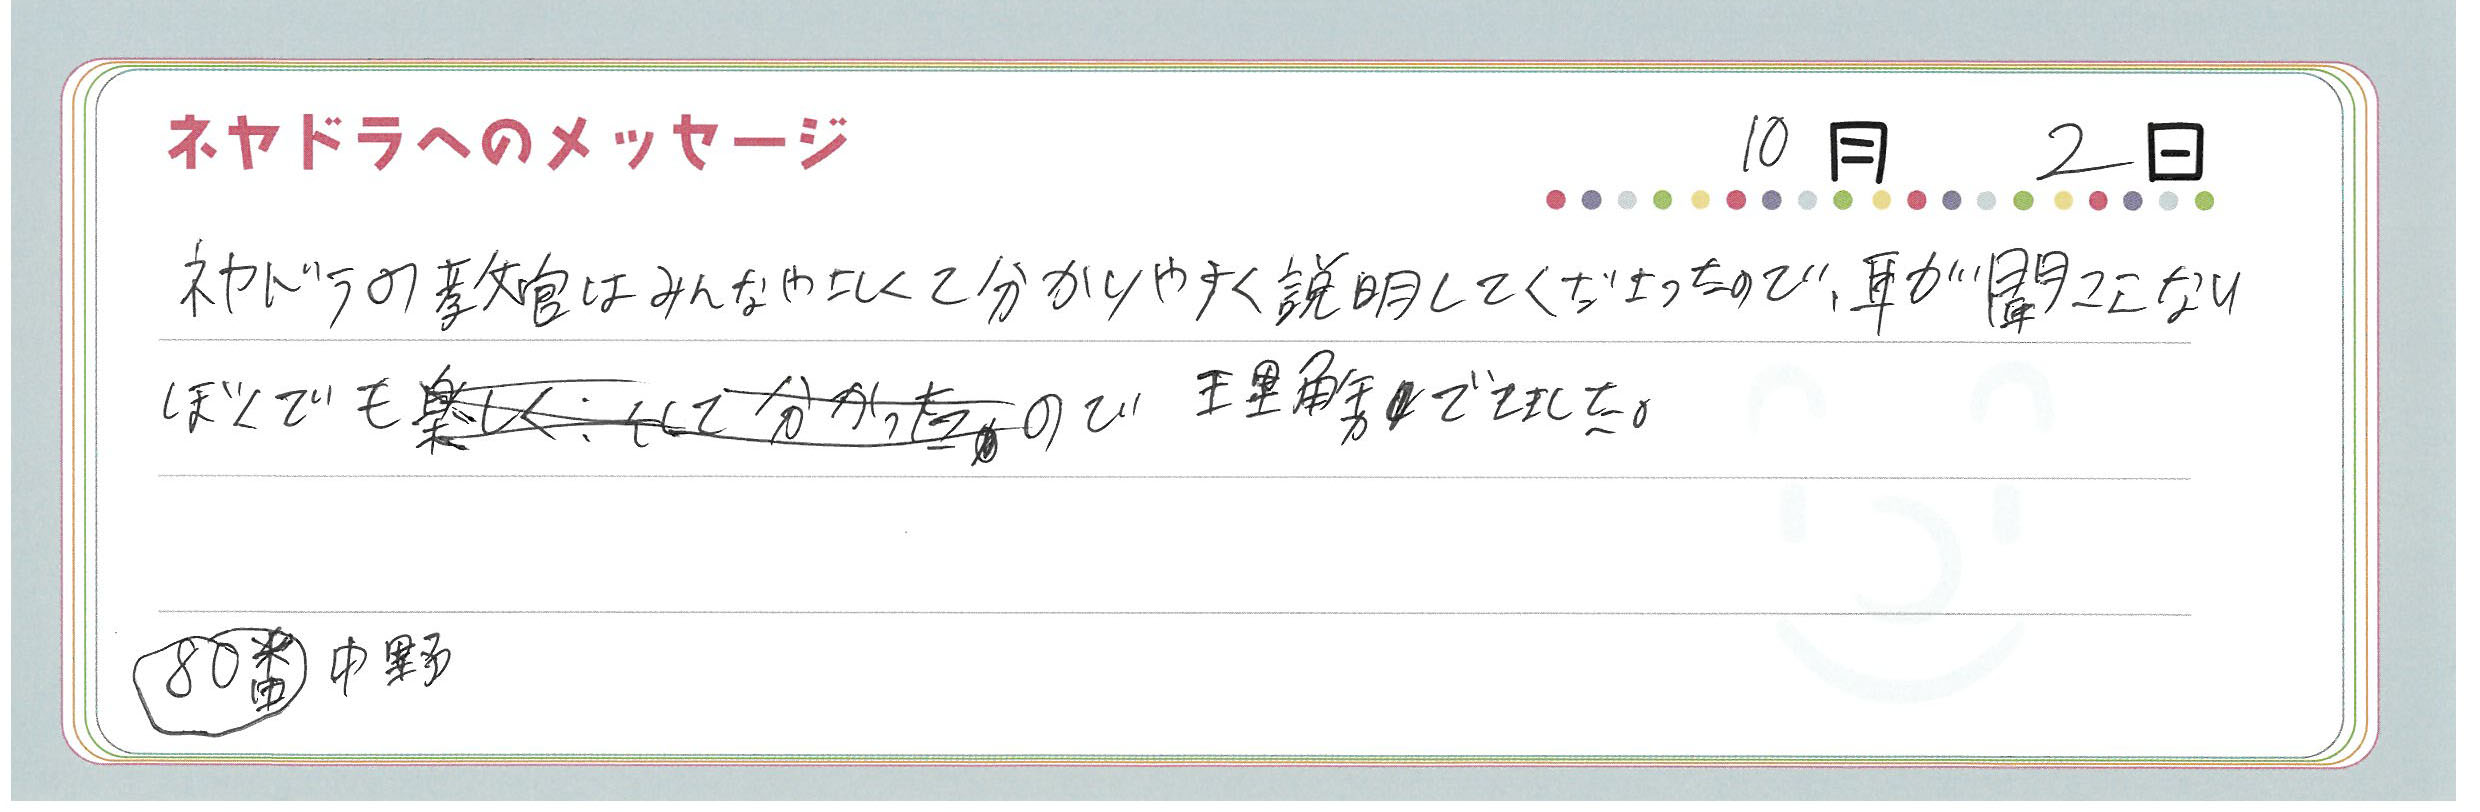 ネヤドラへのメッセージ
10月 2日
ネヤドラの教官はみんなやさしくて分かりやすく説明してくださったので、耳が聞こえない
ぼくでも楽しく ので 理解できました。
80番 中野